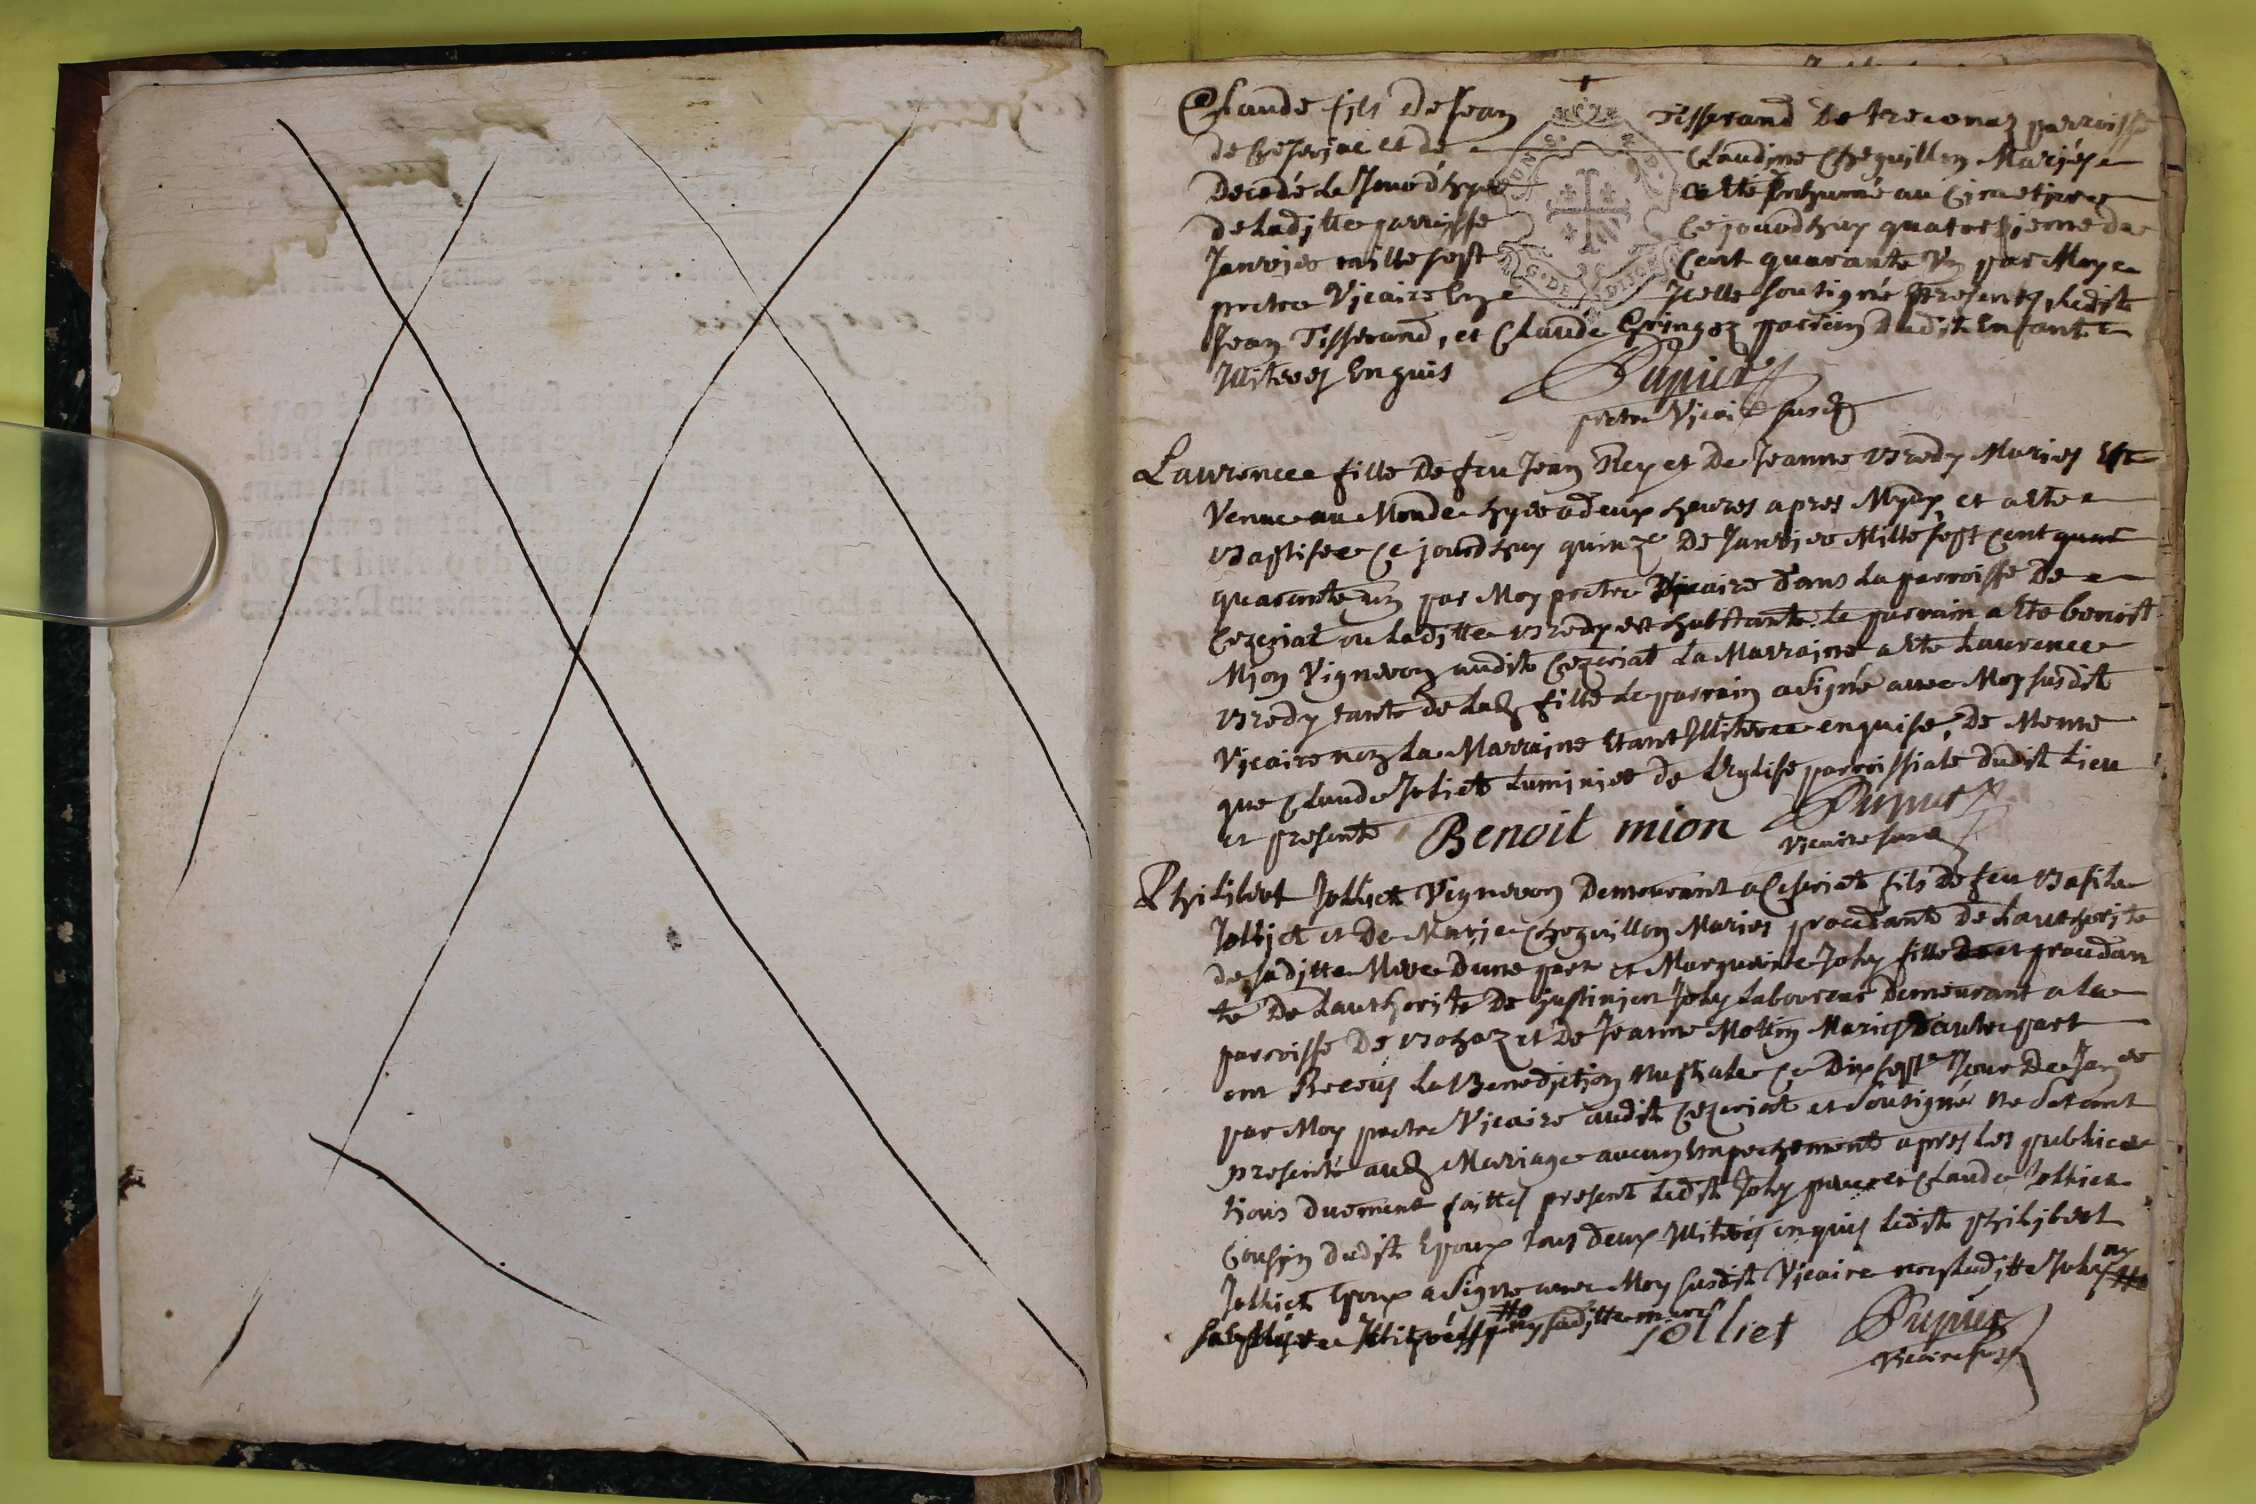 Claude fils de Jean Tisserand de treconaz parroisse
de Ceseriac et de Claudine Cheguillon Mariés
decedé le Jourdhuy a esté inhumé au Cimetiere
de laditte parroisse ce jourdhuy quatorsieme de
Janvier mille sept cent quarante Un par Moy
pretre Vicaire En Icelle soutigné presents ledit
Jean Tisserand, et Claude Gringoz parrain dudit Enfant
Illiterés Enquis Pupier
pretre Vicaire susd
Laurence fille de feu Jean Rey et de Jeanne Bredy Mariés Est
Venue au Monde hyer a deux heures apres Mydy, et a esté
Baptisée ce jourdhuy quinze de Janvier Mille sept cent quar
quarante un par Moy pretre Vicaire dans la parroisse de
Cezeriat ou laditte Bredy est habitante le parrain a esté benoist
Mion Vigneron audit Cezeriat La Marraine a esté Laurence
Bredy tante de lad fille le parrain a signé avec Moy susdit
Vicaire non la Marraine Etant Illiterée enquise, de Meme
que Claude Joliet Luminier de l'Eglise parroissiale dudit lieu
et presente Benoit mion Pupier
Vicaire susd
Philibert Jolliet Vigneron demeurant a Ceseriat fils de feu Basile
Jolliet et de Marie Cheguillon Mariés procedant de l'authorité
de saditte Mere d'une part et Marguerite Joly fille de et procedan
te de l'authorité de justinien Joly laboureur demeurant a la
parroisse de Bohaz et de Jeanne Mottin Mariés d'autre part
ont Receus la Benediction Nuptiale ce Dix sept Jour de Janer
par Moy pretre Vicaire audit Cezeriat et soutigné ne s'etant
presenté aud Mariage aucun Empechement apres les publica
tions duement faittes present ledit Joly pere et Claude Jolliet
Cousin dudit Epoux tous deux Illiterés enquis ledit philibert
Jolliet Epoux a signé avec Moy susdit Vicaire non laditte Joly ny
saditte mere
jolliet Pupier
Vicaire susd